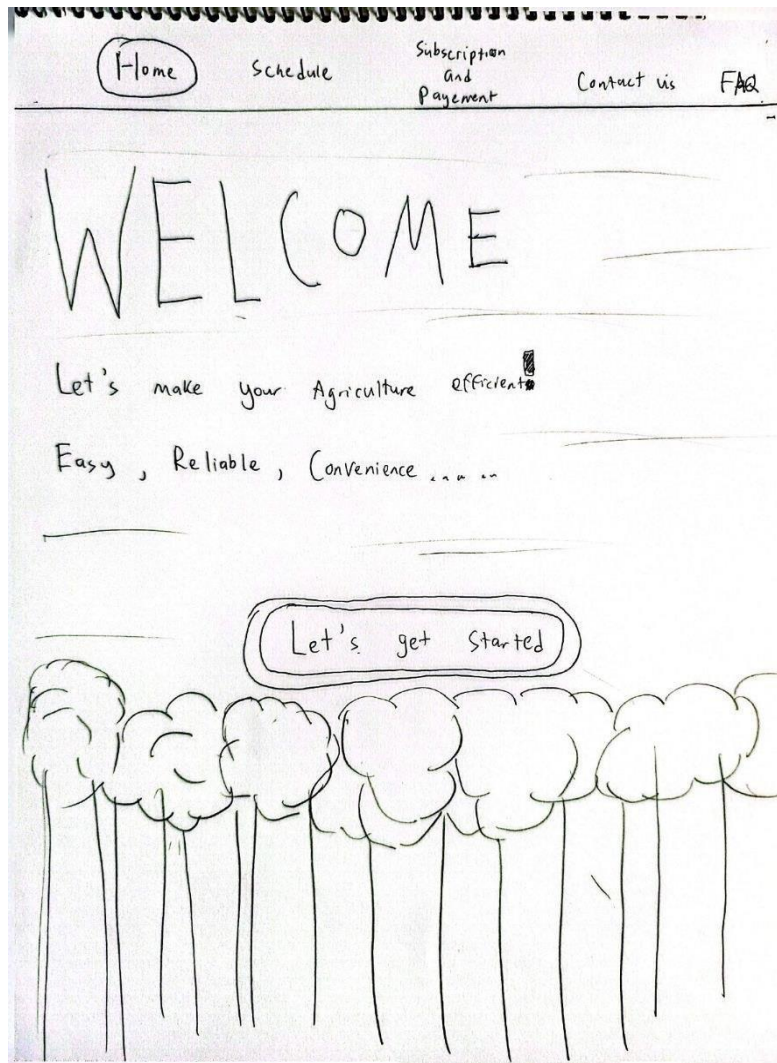 Home
Schedule
Subscription
and
Payement
Contact us
FAQ
WELCOME
Let's make your Agriculture efficient!
Easy, Reliable, Convenience.....
Let's get started